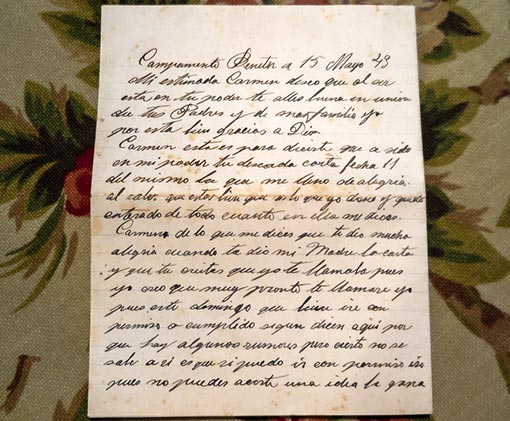 Campamento Benitez a 15 Mayo 43
Mi estimada Carmen deseo que al ser
esta en tu poder te alles buena en union
de tus Padres y de mas familia yo
por esta bien gracias a Dios
Carmen esta es para decirte que a sido
en mi poder tu deseada carta fecha 11
del mismo la que me lleno de alegria
al saber que estas bien que es lo que yo deseo y quedo
enterado de todo cuanto en ella me dices.
Carmen de lo que me dices que te dio mucha
alegria cuando ta dio mi Madre la carta
y que tu creias que yo te llamaba pues
yo creo que muy pronto te llamare yo
pues este domingo que biene ire con
permiso o cumplido segun dicen aqui por
que hay algunos rumores pero cierto no se
sabe a si es que si puedo ir con permiso ire
pues no puedes acerte una idea la gana